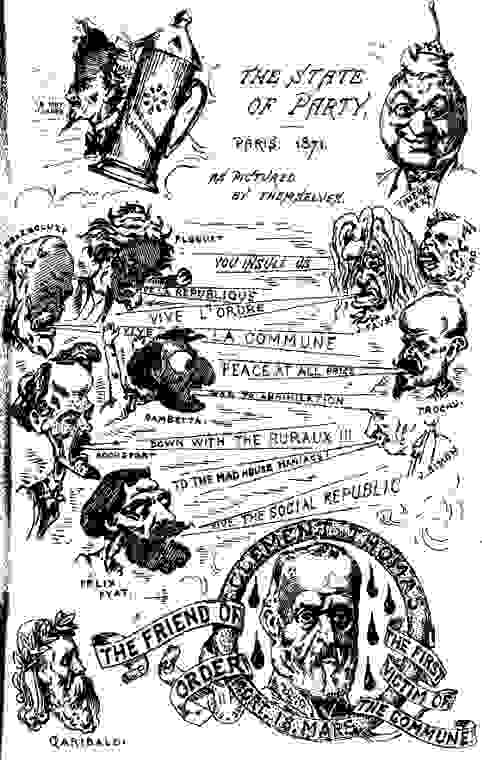 THE STATE
OF PARTY,
PARIS. 1871.
AS PICTURED
BY THEMSELVES.
FLOQUET
PICARD
YOU INSULT US
VIVE LA REPUBLIQUE
VIVE L'ORDRE
J. FAVRE
VIVE LA COMMUNE
PEACE AT ALL PRICE
WAR TO ANNIHILATION
TROCHU.
GAMBETTA.
DOWN WITH THE RURAUX !!!
ROCHEFORT
TO THE MAD HOUSE MANIACS!
J. SIMON
VIVE THE SOCIAL REPUBLIC
FELIX
PYAT.
CLEMENT THOMAS
THE FRIEND OF
ORDER
THE FIRST
VICTIM OF
THE COMMUNE
GARIBALDI.